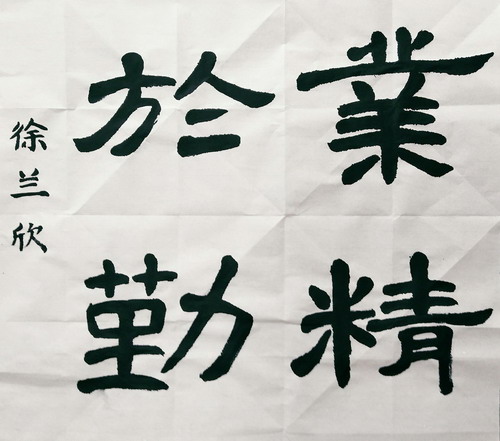 業精
於勤
徐兰欣